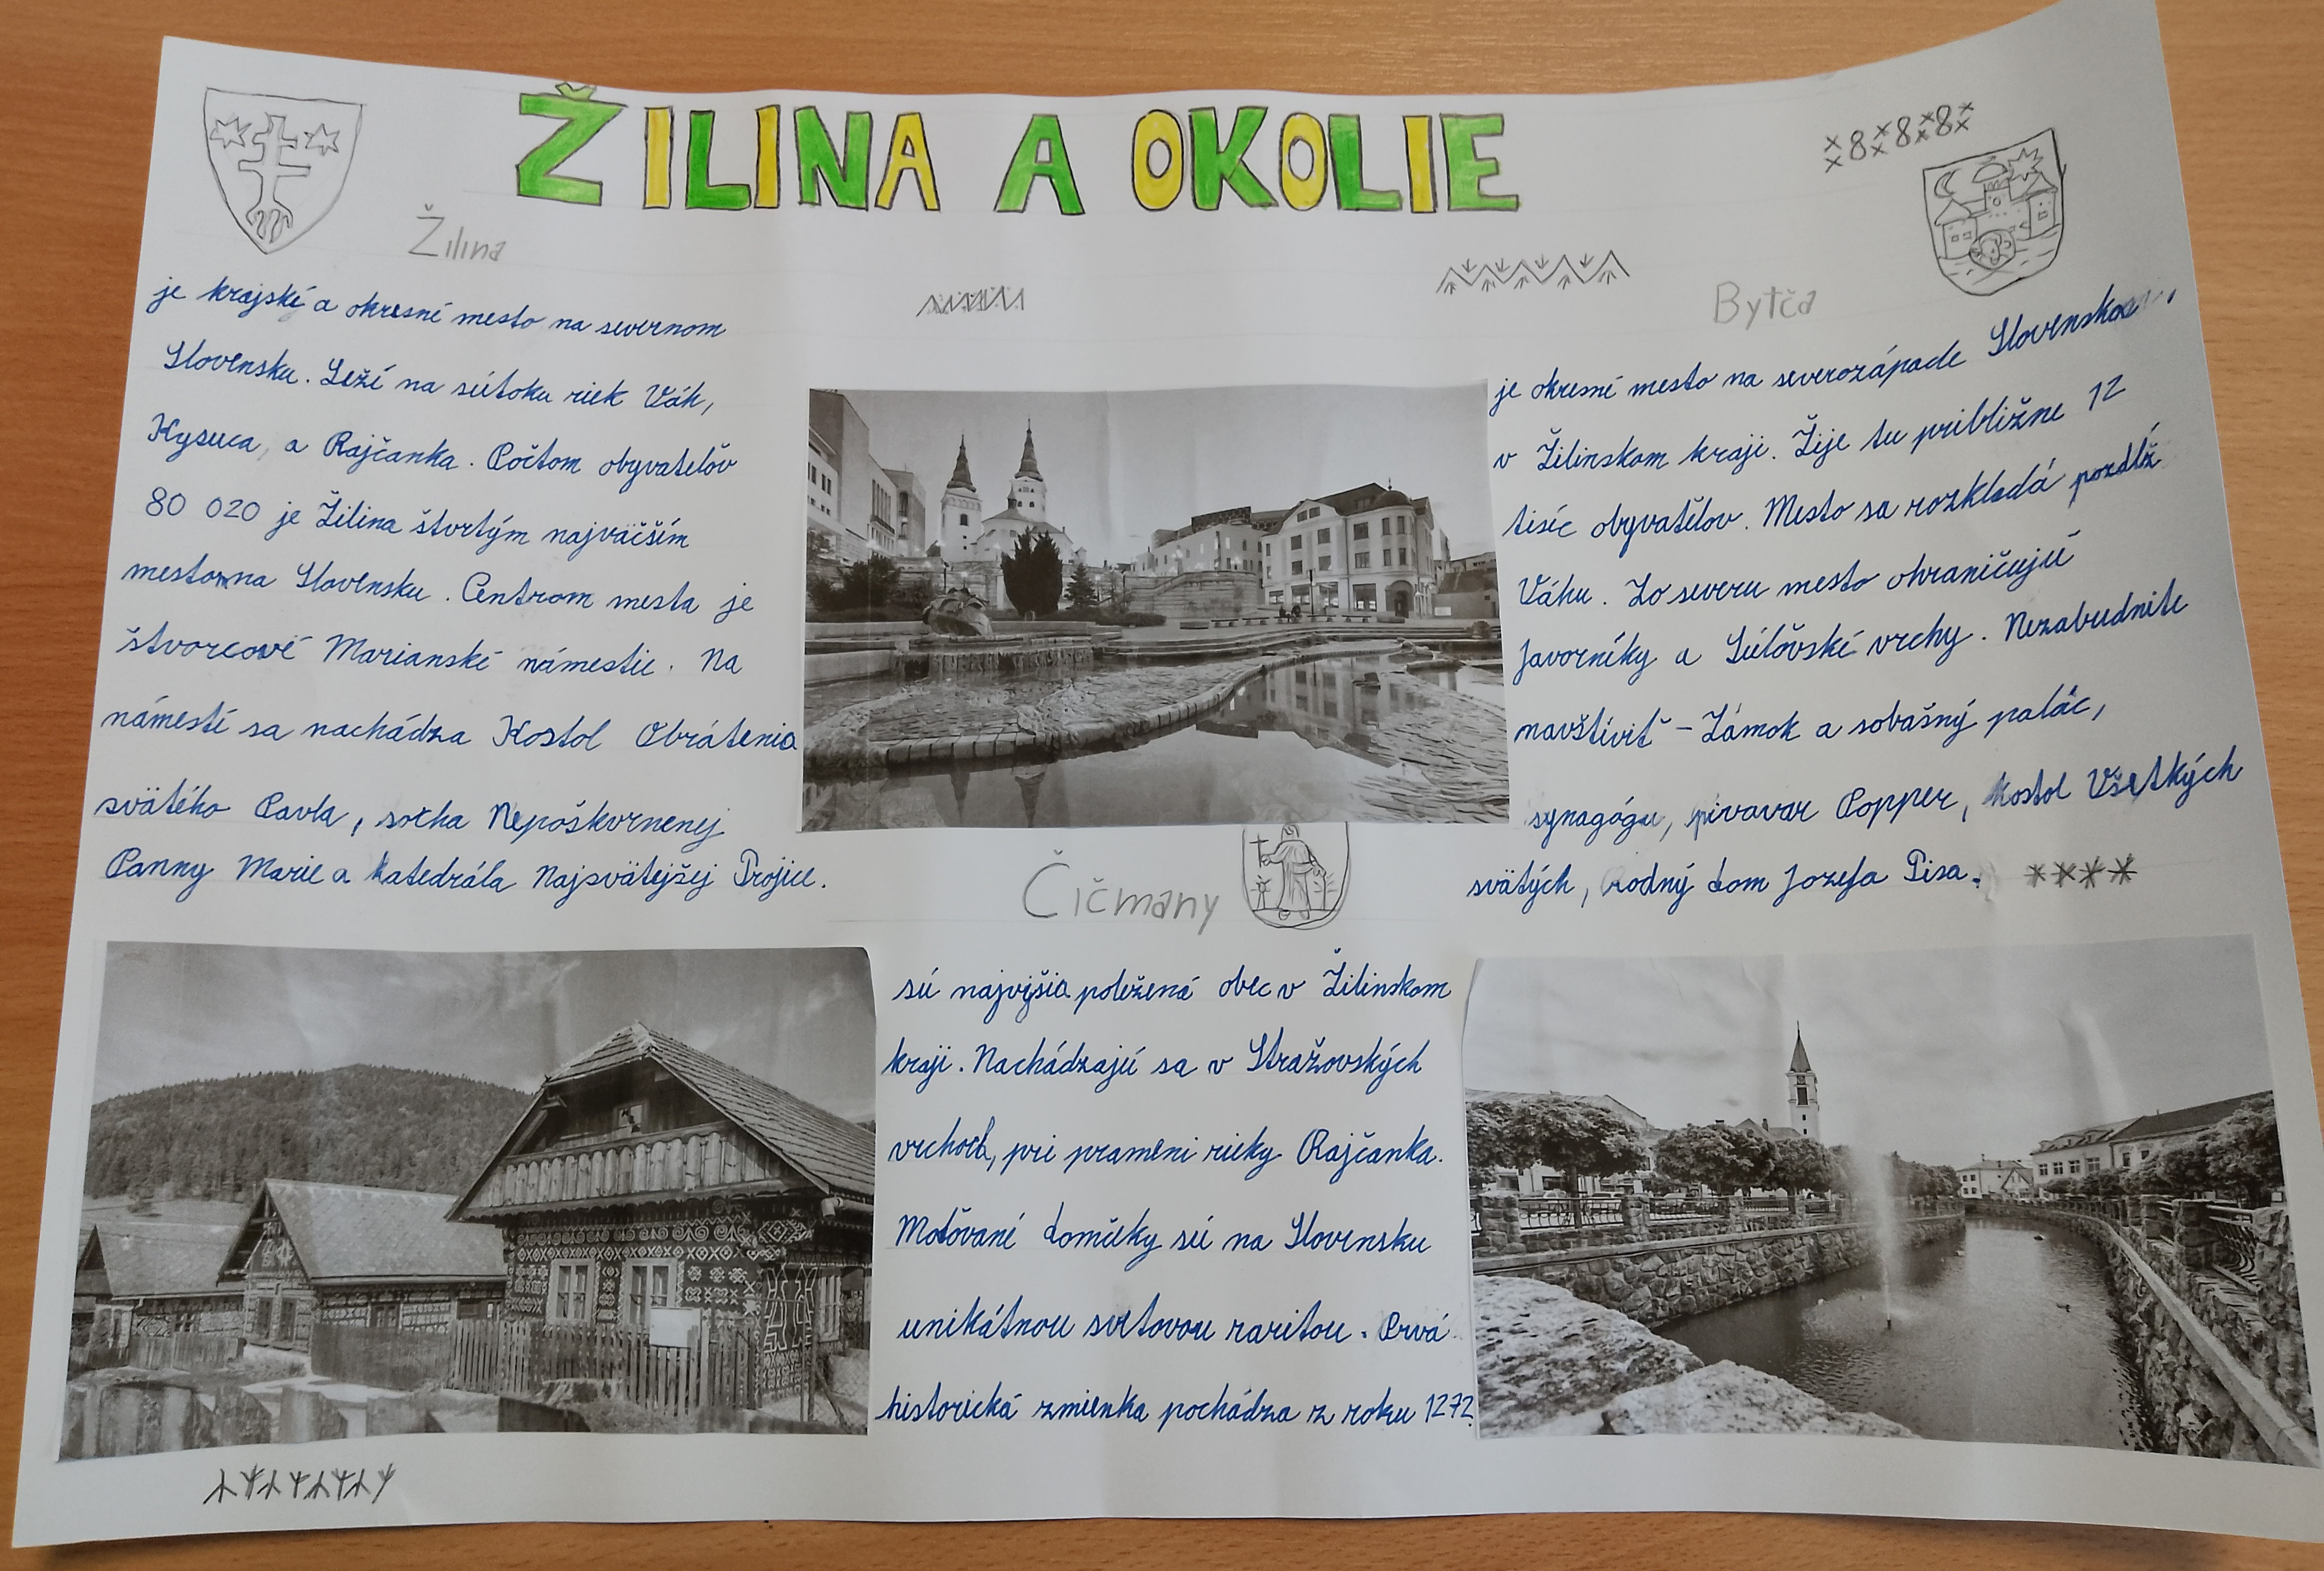 ŽILINA A OKOLIE
Žilina
je krajské a okresné mesto na severnom
Slovensku. Leží na sútoku riek Váh,
Kysuca, a Rajčanka. Počtom obyvateľov
80 020 je Žilina štvrtým najväčším
mestom na Slovensku. Centrom mesta je
štvorcové Marianské námestie. Na
námestí sa nachádza Kostol Obrátenia
svätého Pavla, socha Nepoškvrnenej
Panny Marie a katedrála Najsvätejšej Trojice.
Bytča
je okresné mesto na severozápade Slovenska
v Žilinskom kraji. Žije tu približne 12
tisíc obyvateľov. Mesto sa rozkladá pozdĺž
Váhu. Zo severu mesto ohraničujú
Javorníky a Súľovské vrchy. Nezabudnite
navštíviť - Zámok a sobašný palác,
synagógu, pivavar Popper, kostol Všetkých
svätých, rodný dom Jozefa Tisa.
Čičmany
sú najvyšia položená obec v Žilinskom
kraji. Nachádzajú sa v Stražovských
vrchoch, pri prameni rieky Rajčanka.
Maľované domčeky sú na Slovensku
unikátnou svetovou raritou. Prvá
historická zmienka pochádza z roku 1272.